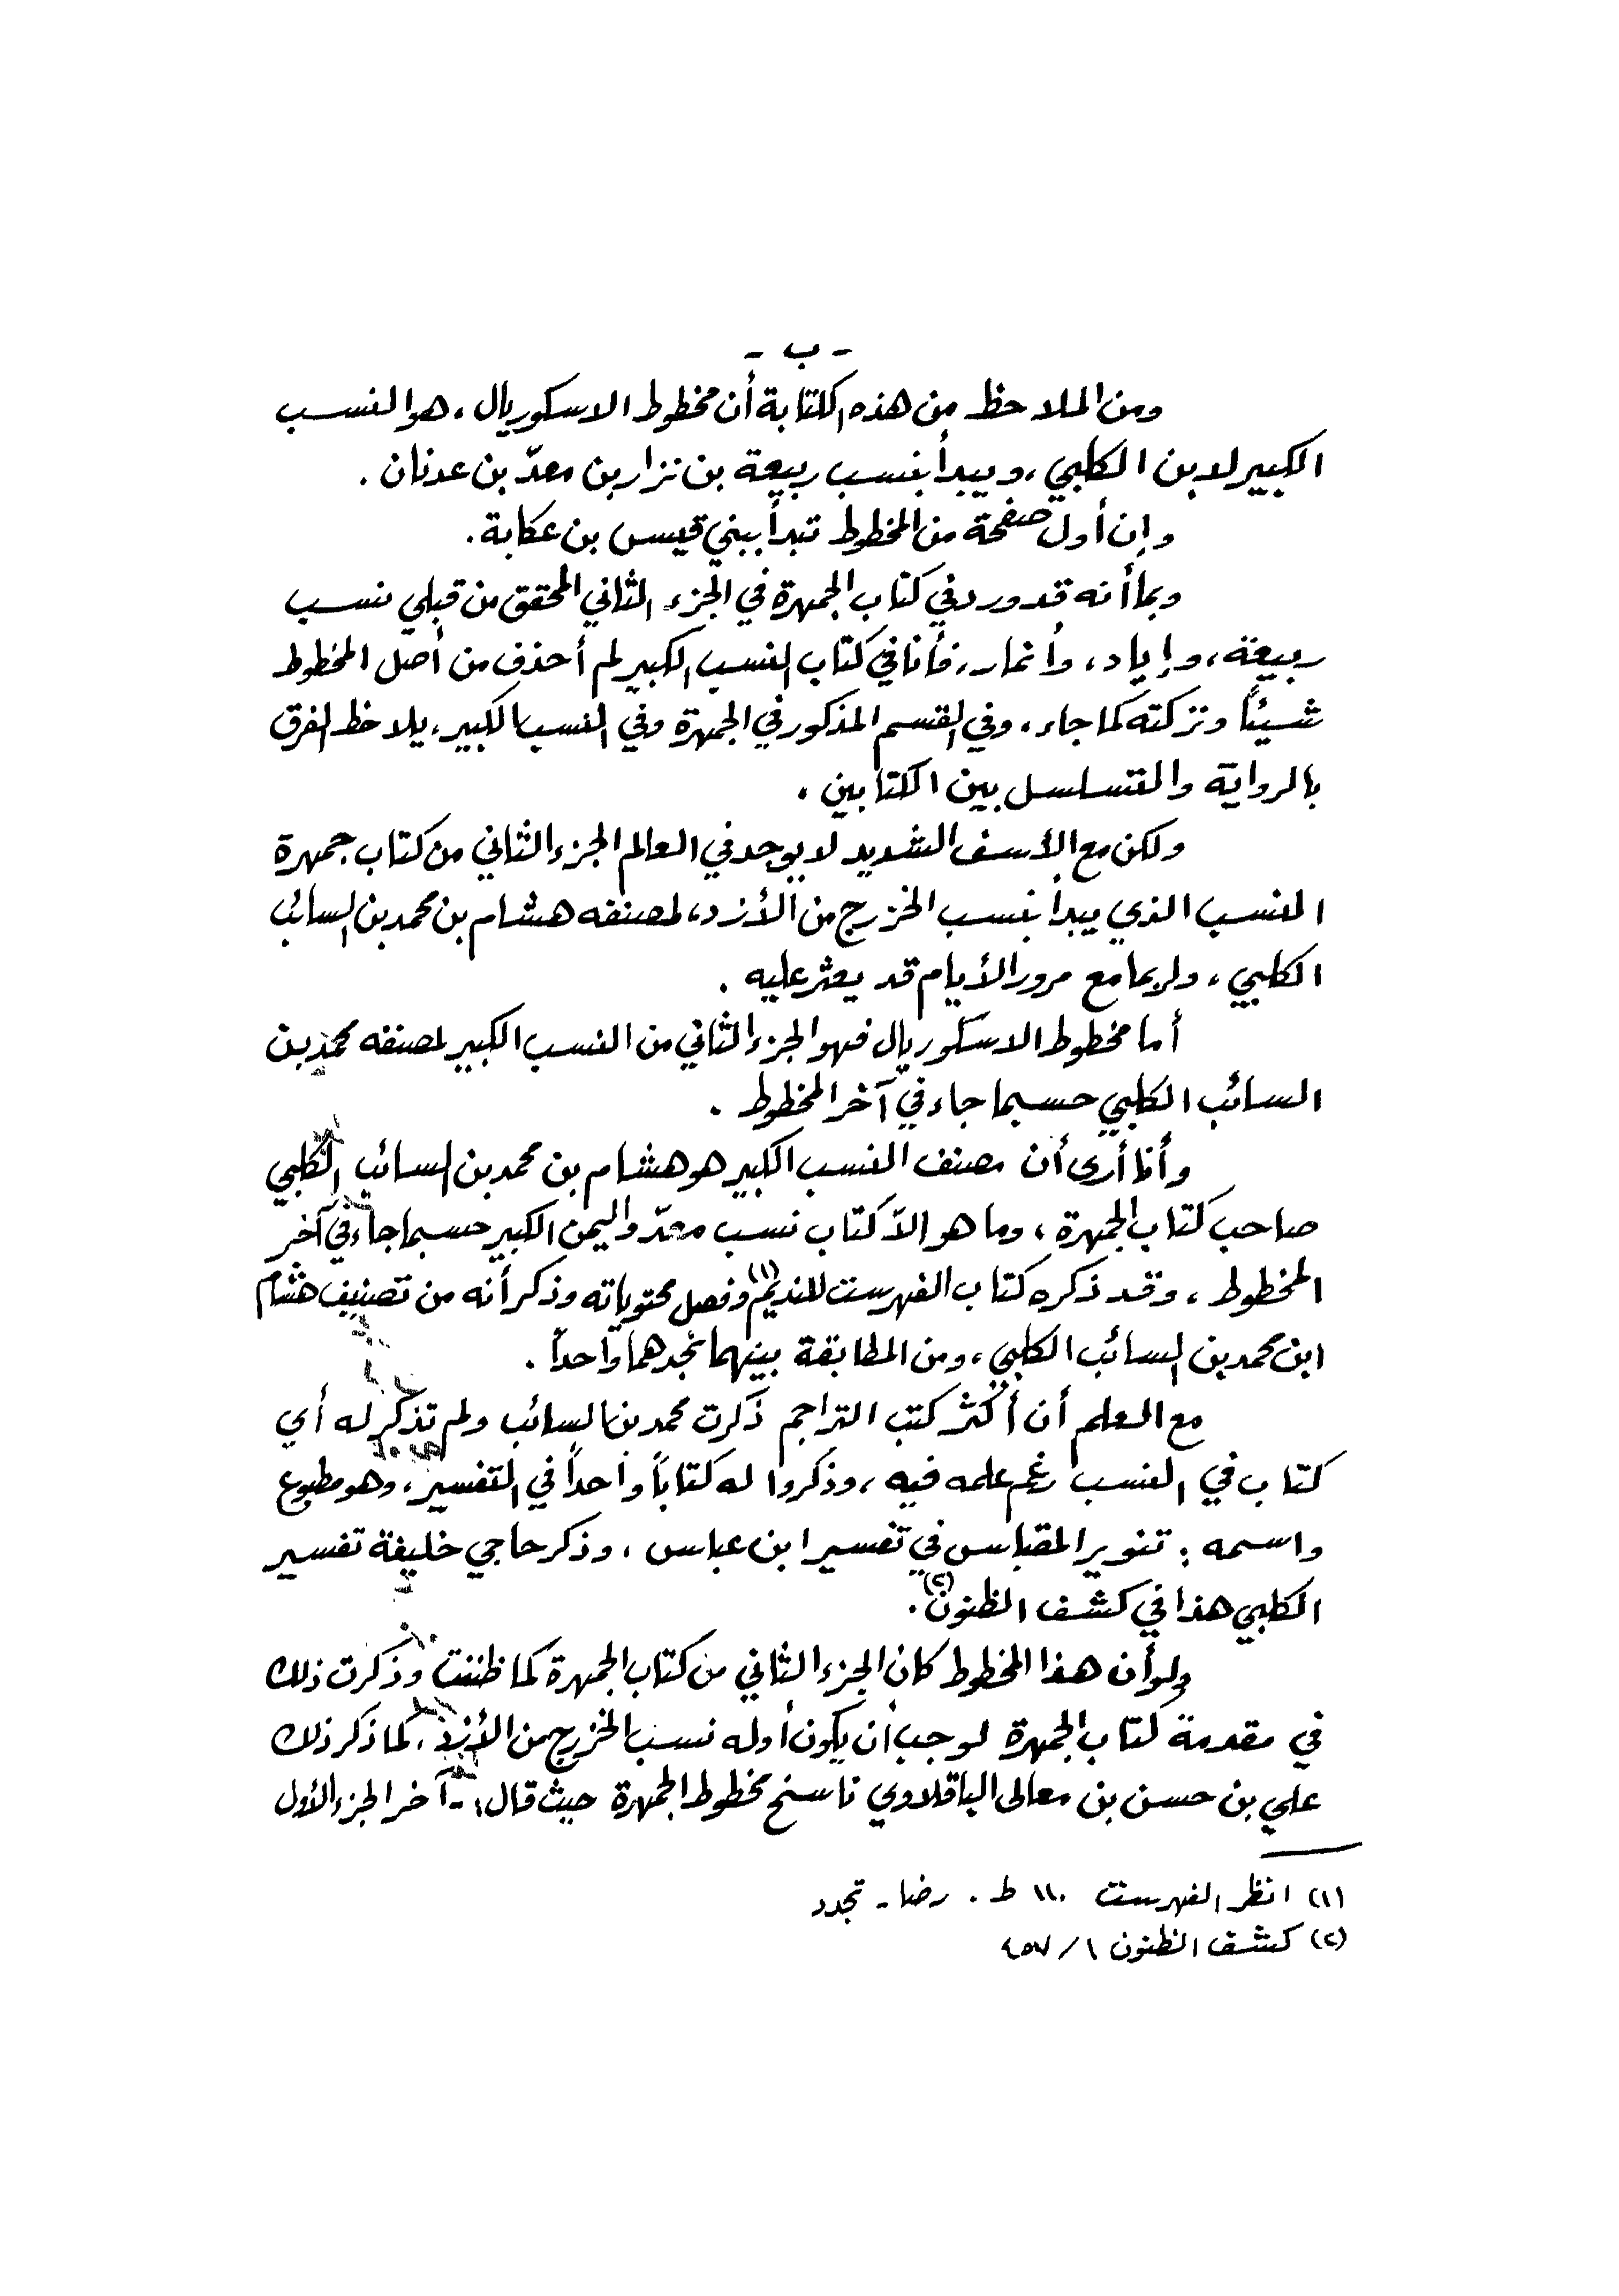 - ب -
ومن الملاحظ من هذه الكتابة أن مخطوط الاسكوريال ، هو النسب
الكبير لابن الكلبي ، ويبدأ بنسب ربيعة بن نزار بن معدّ بن عدنان .
وإن أول صفحة من المخطوط تبدأ ببني قيس بن عكابة .
وبما أنه قد ورد في كتاب الجمهرة في الجزء الثاني المحقق من قبلي نسب
ربيعة ، وإياد ، وأنمار ، فأنا في كتاب النسب الكبير لم أحذف من أصل المخطوط
شيئاً وتركته كما جاء ، وفي القسم المذكور في الجمهرة وفي النسب الكبير ، يلاحظ الفرق
بالرواية والتسلسل بين الكتابين .
ولكن مع الأسف الشديد لا يوجد في العالم الجزء الثاني من كتاب جمهرة
النسب الذي يبدأ بنسب الخزرج من الأزد ، لمصنفه هشام بن محمد بن السائب
الكلبي ، ولربما مع مرور الأيام قد يعثر عليه .
أما مخطوط الاسكوريال فهو الجزء الثاني من النسب الكبير لمصنفه محمد بن
السائب الكلبي حسبما جاء في آخر المخطوط .
وأنا أرى أن مصنف النسب الكبير هو هشام بن محمد بن السائب الكلبي
صاحب كتاب الجمهرة ، وما هو الاّ كتاب نسب معدّ واليمن الكبير حسبما جاء في آخر
المخطوط ، وقد ذكره كتاب الفهرست للنديم (١) وفصل محتوياته وذكر أنه من تصنيف هشام
ابن محمد بن السائب الكلبي ، ومن المطابقة بينهما نجدهما واحداً .
مع العلم أن أكثر كتب التراجم ذكرت محمد بن السائب ولم تذكر له أي
كتاب في النسب رغم علمه فيه ، وذكروا له كتاباً واحداً في التفسير ، وهو مطبوع
واسمه : تنوير المقباس في تفسير ابن عباس ، وذكر حاجي خليفة تفسير
الكلبي هذا في كشف الظنون (٢) .
ولو أن هذا المخطوط كان الجزء الثاني من كتاب الجمهرة كما ظننت وذكرت ذلك
في مقدمة كتاب الجمهرة لوجب أن يكون أوله نسب الخزرج من الأزد ، كما ذكر ذلك
علي بن حسن بن معالى الباقلاوي ناسخ مخطوط الجمهرة حيث قال : - آخر الجزء الأول
(١) انظر الفهرست ١١٠ ط . رضا - تجدد
(٢) كشف الظنون ١/٤٥٧